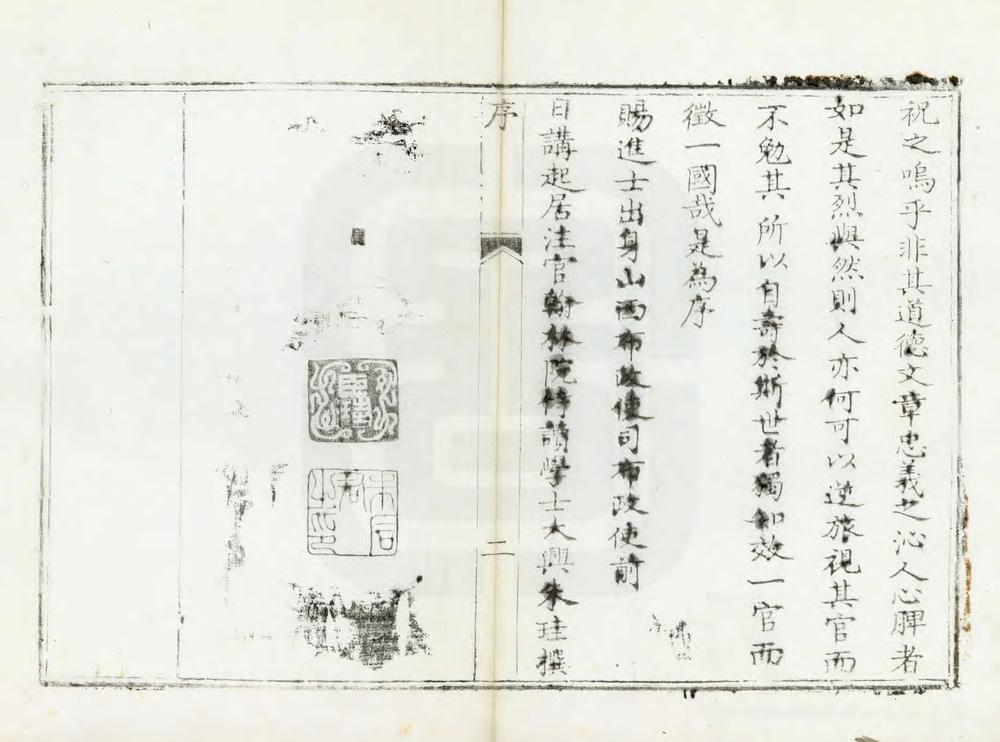 祝之嗚乎非其道德文章忠義之沁人心脾者
如是其烈與然則人亦何可以逆旅視其官而
不勉其所以自壽於斯世者獨如效一官而
徵一國哉是為序
賜進士出身山西布政使司布政使前
日講起居注官翰林院侍讀學士大興朱珪撰
序
二
朱石君之印